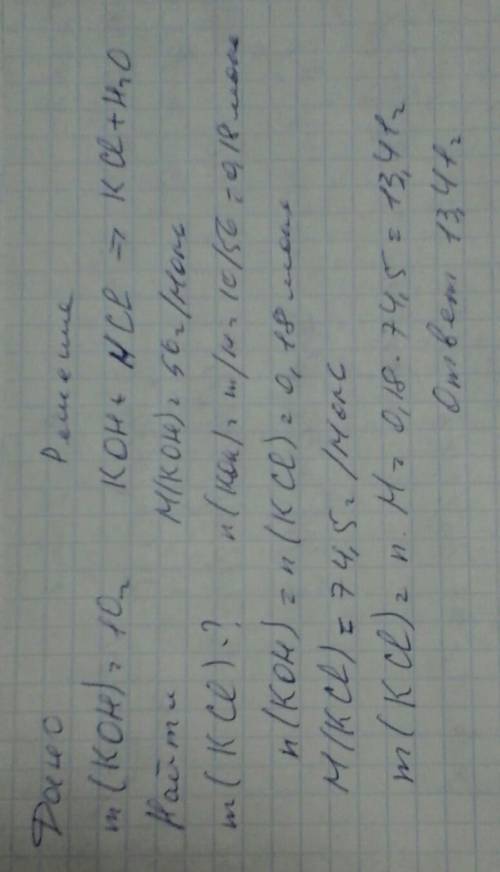 Дано Решение
m(KOH)=10г KOH+HCl=>KCl+H2O
Найти M(KOH)=56г/моль
m(KCl)-? n(KOH)=m/M=10/56=0,18моль
n(KOH)=n(KCl)=0,18моль
M(KCl)=74,5г/моль
m(KCl)=n·M=0,18·74,5=13,41г
Ответ 13,41г